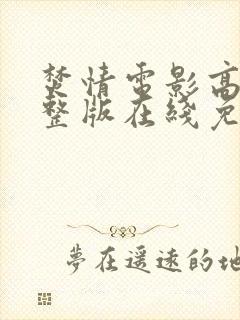 焚情电影高
整版在线免
夢在遥远的地